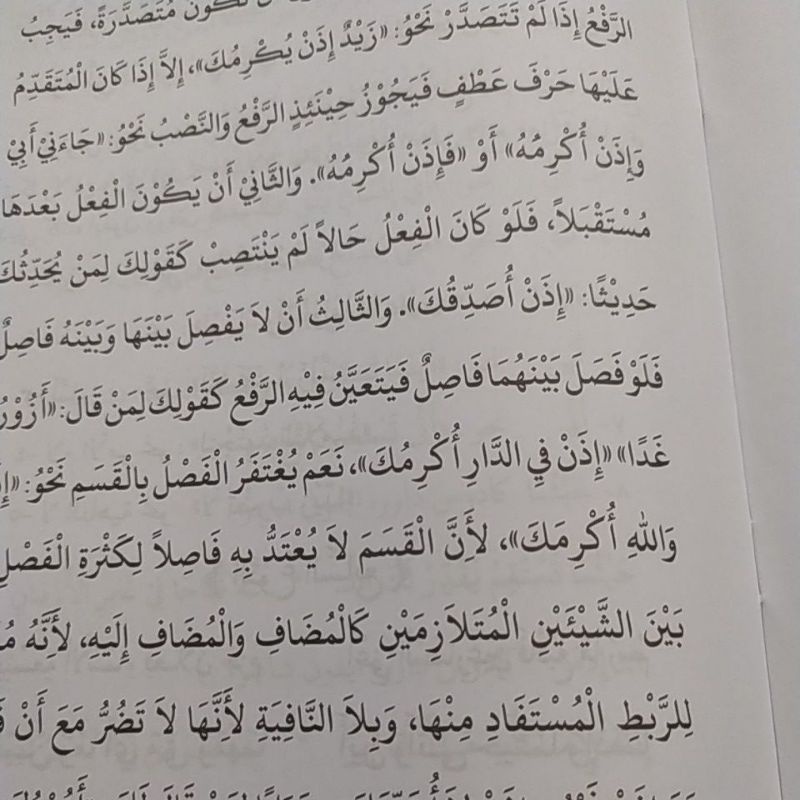 تَكُوْنَ مُتَصَدِّرَةً، فَيَجِبُ
الرَّفْعُ إِذَا لَمْ تَتَصَدَّرْ نَحْوُ: «زَيْدٌ إِذَنْ يُكْرِمُكَ»، إِلاَّ إِذَا كَانَ الْمُتَقَدِّمُ
عَلَيْهَا حَرْفَ عَطْفٍ فَيَجُوْزُ حِيْنَئِذٍ الرَّفْعُ وَالنَّصْبُ نَحْوُ: «جَاءَنِيْ أَبِيْ
وَإِذَنْ أُكْرِمُهُ» أَوْ «فَإِذَنْ أُكْرِمُهُ». وَالثَّانِيْ أَنْ يَكُوْنَ الْفِعْلُ بَعْدَهَا
مُسْتَقْبَلاً، فَلَوْ كَانَ الْفِعْلُ حَالاً لَمْ يَنْتَصِبْ كَقَوْلِكَ لِمَنْ يُحَدِّثُكَ
حَدِيْثًا: «إِذَنْ أُصَدِّقُكَ». وَالثَّالِثُ أَنْ لاَ يَفْصِلَ بَيْنَهَا وَبَيْنَهُ فَاصِلٌ
فَلَوْ فَصَلَ بَيْنَهُمَا فَاصِلٌ فَيَتَعَيَّنُ فِيْهِ الرَّفْعُ كَقَوْلِكَ لِمَنْ قَالَ: «أَزُوْرُ
غَدًا» «إِذَنْ فِي الدَّارِ أُكْرِمُكَ»، نَعَمْ يُغْتَفَرُ الْفَصْلُ بِالْقَسَمِ نَحْوُ:
وَاللهِ أُكْرِمَكَ»، لأَنَّ الْقَسَمَ لاَ يُعْتَدُّ بِهِ فَاصِلاً لِكَثْرَةِ الْفَصْلِ
بَيْنَ الشَّيْئَيْنِ الْمُتَلاَزِمَيْنِ كَالْمُضَافِ وَالْمُضَافِ إِلَيْهِ، لأَنَّهُ
لِلرَّبْطِ الْمُسْتَفَادِ مِنْهَا، وَبِلاَ النَّافِيَةِ لأَنَّهَا لاَ تَضُرُّ مَعَ أَنْ